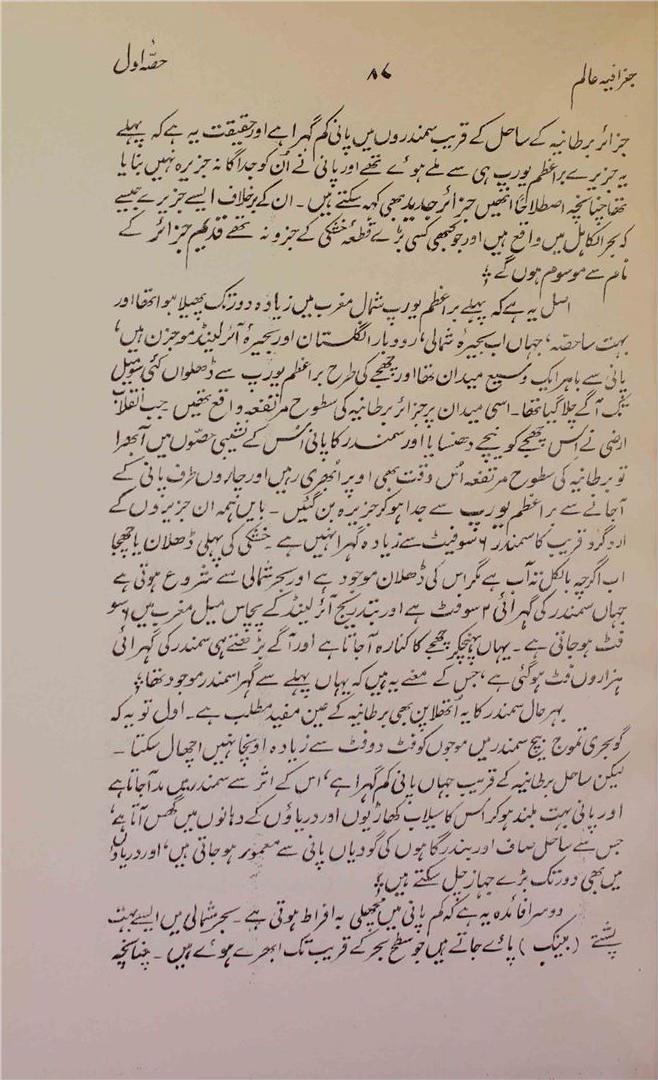 جغرافیہ عالم
۸۶
حصّہ اول
جزائر برطانیہ کے ساحل کے قریب سمندروں میں پانی کم گہرا ہے اور حقیقت یہ ہے کہ پہلے
یہ جزیرے براعظم یورپ ہی سے ملے ہوئے تھے اور پانی نے اُن کو جداگانہ جزیرہ نہیں بنایا
تھا چنانچہ اصطلاحاً انھیں جزائر جدید بھی کہہ سکتے ہیں۔ ان کے برخلاف ایسے جزیرے جیسے
کہ بحرالکاہل میں واقع ہیں اور جو کبھی کسی بڑے قطعۂ خشکی کے جزو نہ تھے قدیم جزائر کے
نام سے موسوم ہوں گے؛
اصل یہ ہے کہ پہلے براعظم یورپ شمال مغرب میں زیادہ دور تک پھیلا ہوا تھا اور
بہت سا حصّہ، جہاں اب بحیرۂ شمالی، رودبار انگلستان اور بحیرۂ آئرلینڈ موجزن ہیں،
پانی سے باہر ایک وسیع میدان تھا اور چھجے کی طرح براعظم یورپ سے ڈھلواں کئی سو میل
تک آگے چلا گیا تھا۔ اسی میدان پر جزائر برطانیہ کی سطوح مرتفعہ واقع تھیں۔ جب انقلاب
ارضی نے اس چھجے کو نیچے دھنسایا اور سمندر کا پانی اُس کے نشیبی حصّوں میں آبھرا
تو برطانیہ کی سطوح مرتفعہ اُس وقت بھی اوپر اُبھری رہیں اور چاروں طرف پانی کے
آجانے سے براعظم یورپ سے جدا ہوکر جزیرہ بن گئیں۔ بایں ہمہ ان جزیروں کے
اردگرد قریب کا سمندر ۶ سو فیٹ سے زیادہ گہرا نہیں ہے۔ خشکی کی پہلی ڈھلان یا چھجا
اب اگرچہ بالکل تہ آب ہے مگر اس کی ڈھلان موجود ہے اور بحر شمالی سے شروع ہوتی ہے
جہاں سمندر کی گہرائی ۲ سو فٹ ہے اور بتدریج آئرلینڈ کے پچاس میل مغرب میں ۶ سو
فٹ ہوجاتی ہے۔ یہاں پہنچکر چھجے کا کنارہ آجاتا ہے اور آگے بڑھتے ہی سمندر کی گہرائی
ہزاروں فٹ ہوگئی ہے، جس کے معنے یہ ہیں کہ یہاں پہلے سے گہرا سمندر موجود تھا؛
بہرحال سمندر کا یہ اُتھلاپن بھی برطانیہ کے عین مفید مطلب ہے۔ اول تو یہ کہ
گو بحری تموج بیچ سمندر میں موجوں کو فٹ دو فٹ سے زیادہ اونچا نہیں اچھال سکتا۔
لیکن ساحل برطانیہ کے قریب جہاں پانی کم گہرا ہے، اس کے اثر سے سمندر میں مد آجاتا ہے
اور پانی بہت بلند ہوکر اُس کا سیلاب کھاڑیوں اور دریاؤں کے دہانوں میں گھس آتا ہے،
جس سے ساحل صاف اور بندرگاہوں کی گودیاں پانی سے معمور ہوجاتی ہیں، اور دریاؤں
میں بھی دور تک بڑے جہاز چل سکتے ہیں؛
دوسرا فائدہ یہ ہے کہ کم پانی میں مچھلی بہ افراط ہوتی ہے۔ بحر شمالی میں ایسے بہت
پشتے (بینک) پائے جاتے ہیں جو سطح بحر کے قریب تک ابھرے ہوئے ہیں۔ چنانچہ